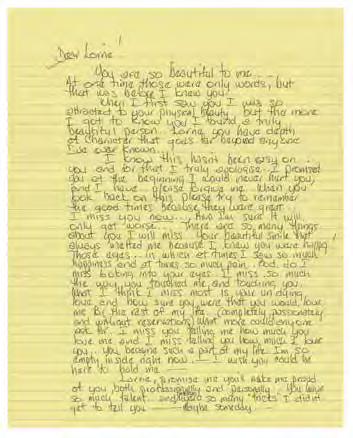 Dear Lorrie!
You are so beautiful to me...
At one time those were only words, but
that was before I knew you!
When I first saw you I was so
attracted to your physical beauty but the more
I got to know you I found a truly
beautiful person. Lorrie you have depth
of character that goes far beyond anyone
I've ever known...
I know this hasn't been easy on
you and for that I truly apologise. I promised
you at the beginning I would never hurt you
and I have. please forgive me. When you
look back on this please try to remember
the good times because they were great.
I miss you now... And I'm sure it will
only get worse. There are so many things
about you I will miss. Your beautiful smile that
always melted me because I knew you were happy.
Those eyes... in which at times I saw so much
happiness and at times so much pain. God, do I
miss looking into your eyes. I miss so much
the way you touched me and touching you.
What I think I miss most is your undying
love and how sure you were that you would love
me for the rest of my life. (completely, passionately
and without reservations) What more could anyone
ask for. I miss you telling me how much you
love me and I miss telling you how much I love
you... You became such a part of my life. I'm so
empty inside right now... I wish you could be
here to hold me
Lorrie, promise me you'll make me proud
of you both professionally and personally. You have
so much talent and so many "tricks" I didn't
get to tell you — maybe someday